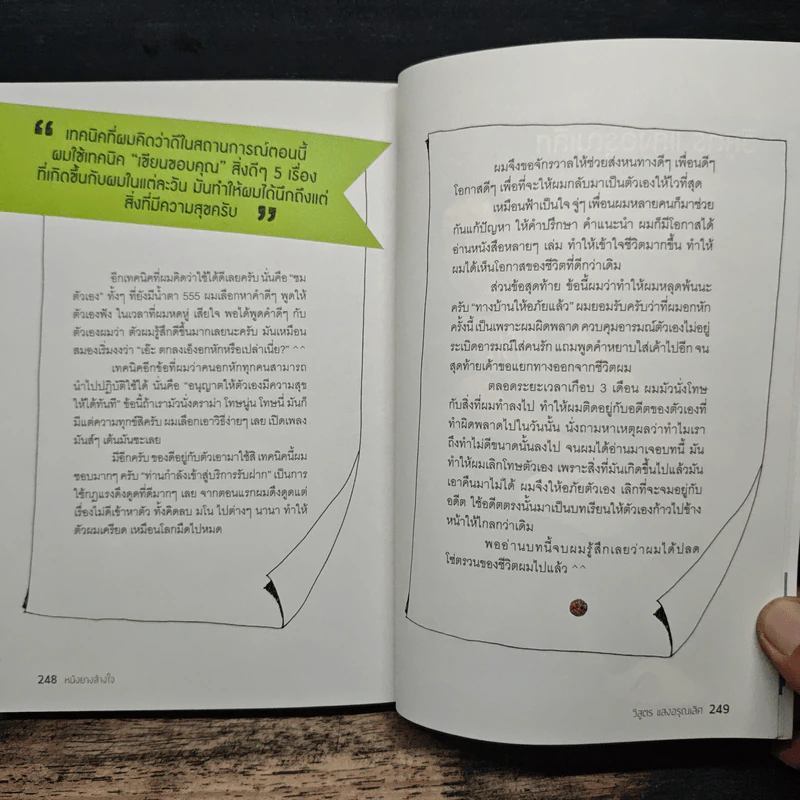 “ เทคนิคที่ผมคิดว่าดีในสถานการณ์ตอนนี้
ผมใช้เทคนิค “เขียนขอบคุณ” สิ่งดีๆ 5 เรื่อง
ที่เกิดขึ้นกับผมในแต่ละวัน มันทำให้ผมได้นึกถึงแต่
สิ่งที่มีความสุขครับ ”
อีกเทคนิคที่ผมคิดว่าใช้ได้ดีเลยครับ นั่นคือ “ชม
ตัวเอง” ทั้งๆ ที่ยังมีน้ำตา 555 ผมเลือกหาคำดีๆ พูดให้
ตัวเองฟัง ในเวลาที่ผมหดหู่ เสียใจ พอได้พูดคำดีๆ กับ
ตัวเองผมว่า ตัวผมรู้สึกดีขึ้นมากเลยนะครับ มันเหมือน
สมองเริ่มงงว่า “เอ๊ะ ตกลงเอ็งอกหักหรือเปล่าเนี่ย?” ^^
เทคนิคอีกข้อที่ผมว่าคนอกหักทุกคนสามารถ
นำไปปฏิบัติใช้ได้ นั่นคือ “อนุญาตให้ตัวเองมีความสุข
ให้ได้ทันที” ข้อนี้ถ้าเรามัวนั่งดราม่า โทษนู่น โทษนี่ มันก็
มีแต่ความทุกข์สิครับ ผมเลือกเอาวิธีง่ายๆ เลย เปิดเพลง
มันส์ๆ เต้นมันซะเลย
มีอีกครับ ของดีอยู่กับตัวเอามาใช้สิ เทคนิคนี้ผม
ชอบมากๆ ครับ “ท่านกำลังเข้าสู่บริการรับฝาก” เป็นการ
ใช้กฎแรงดึงดูดที่ดีมากๆ เลย จากตอนแรกผมดึงดูดแต่
เรื่องไม่ดีเข้าหาตัว ทั้งคิดลบ มโน ไปต่างๆ นานา ทำให้
ตัวผมเครียด เหมือนโลกมืดไปหมด
248 หนังยางล้างใจ
ผมจึงขอจักรวาลให้ช่วยส่งหนทางดีๆ เพื่อนดีๆ
โอกาสดีๆ เพื่อที่จะให้ผมกลับมาเป็นตัวเองให้ไวที่สุด
เหมือนฟ้าเป็นใจ จู่ๆ เพื่อนผมหลายคนก็มาช่วย
กันแก้ปัญหา ให้คำปรึกษา คำแนะนำ ผมก็มีโอกาสได้
อ่านหนังสือหลายๆ เล่ม ทำให้เข้าใจชีวิตมากขึ้น ทำให้
ผมได้เห็นโอกาสของชีวิตที่ดีกว่าเดิม
ส่วนข้อสุดท้าย ข้อนี้ผมว่าทำให้ผมหลุดพ้นนะ
ครับ “ทางบ้านให้อภัยแล้ว” ผมยอมรับครับว่าที่ผมอกหัก
ครั้งนี้ เป็นเพราะผมผิดพลาด ควบคุมอารมณ์ตัวเองไม่อยู่
ระเบิดอารมณ์ใส่คนรัก แถมพูดคำหยาบใส่เค้าไปอีก จน
สุดท้ายเค้าขอแยกทางออกจากชีวิตผม
ตลอดระยะเวลาเกือบ 3 เดือน ผมมัวนั่งโทษ
กับสิ่งที่ผมทำลงไป ทำให้ผมติดอยู่กับอดีตของตัวเองที่
ทำผิดพลาดไปในวันนั้น นั่งถามหาเหตุผลว่าทำไมเรา
ถึงทำไม่ดีขนาดนั้นลงไป จนผมได้อ่านมาเจอบทนี้ มัน
ทำให้ผมเลิกโทษตัวเอง เพราะสิ่งที่มันเกิดขึ้นไปแล้วมัน
เอาคืนมาไม่ได้ ผมจึงให้อภัยตัวเอง เลิกที่จะจมอยู่กับ
อดีต ใช้อดีตตรงนั้นมาเป็นบทเรียนให้ตัวเองก้าวไปข้าง
หน้าให้ไกลกว่าเดิม
พออ่านบทนี้จบผมรู้สึกเลยว่าผมได้ปลด
โซ่ตรวนของชีวิตผมไปแล้ว ^^
วิสูตร แสงอรุณเลิศ 249